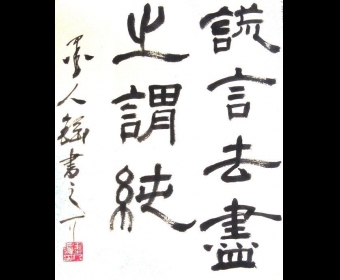 謊言去盡
之謂純
墨人錢書之